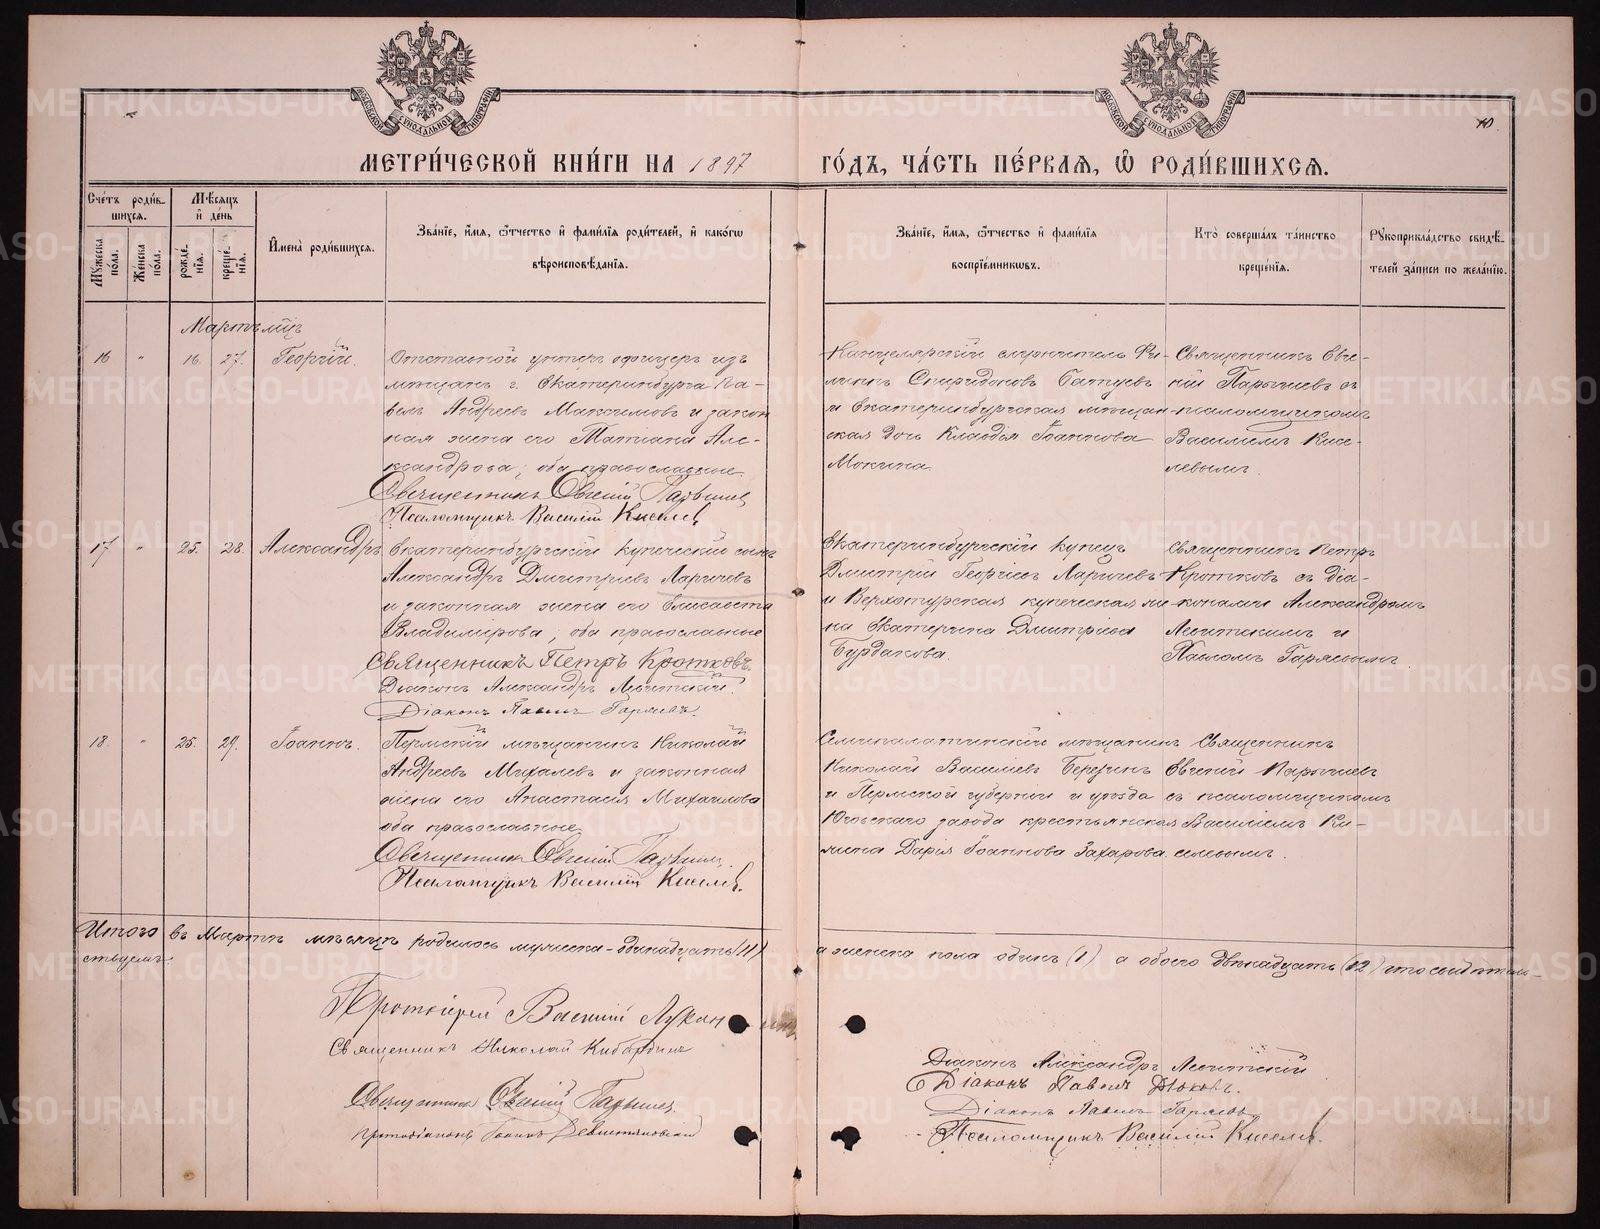 МОСКОВСКОЙ СѴНОДАЛЬНОЙ ТИПОГРАФІИ
МОСКОВСКОЙ СѴНОДАЛЬНОЙ ТИПОГРАФІИ
10.
МЕТРИ́ЧЕСКОЙ КНИ́ГИ НА 1897 ГО́ДЪ, ЧА́СТЬ ПЕ́РВАѦ, Ѿ РОДИ́ВШИХСѦ.
Сче́тъ роди́вшихсѧ.
Мꙋ́жеска по́ла.
Же́нска по́ла.
Мѣ́сѧцъ и҆ де́нь
рожде́нїѧ.
креще́нїѧ.
И҆мена̀ роди́вшихсѧ.
Зва́нїе, и҆́мѧ, ѻ҆́тчество и҆ фами́лїѧ роди́телей, и҆ како́гѡ
вѣроисповѣ́данїѧ.
Зва́нїе, и҆́мѧ, ѻ҆́тчество и҆ фами́лїѧ
воспрїе́мникѡвъ.
Кто̀ соверша́лъ та́инство
креще́нїѧ.
Рꙋкоприкла́дство свидѣ́телей за́писи по жела́нїю.
Мартъ мѣц
16 " 16. 27. Георгій.
Отставной унтеръ офицеръ изъ
мѣщанъ г. Екатеринбурга Па-
велъ Андреевъ Максимовъ и закон
ная жена его Татіана Але-
ксандрова, оба православные.
Священникъ Евгеній
Псаломщикъ Василій Киселев
Канцелярскій служитель Фи-
липпъ Спиридоновъ Батуевъ
и Екатеринбургская мѣщан-
ская дочь Клавдія Іоаннова
Мокина
Священникъ Евге-
ній съ
псаломщикомъ
Василіемъ Кисе-
левымъ.
17 " 25. 28. Александръ
Екатеринбургскій купеческій сынъ
Александръ Дмитріевъ Ларичевъ
и законная жена его Елисавета
Владимірова, оба православные
Священникъ Петръ Кротковъ.
Діаконъ Александръ Левитскій.
Діаконъ Павелъ Гаряевъ.
Екатеринбургскій купецъ
Дмитрій Георгіевъ Ларичевъ
и Верхотурская купеческая же
на Екатерина Дмитріева
Бурдакова.
Священникъ Петръ
Кротковъ съ діа-
конами Александромъ
Левитскимъ и
Павломъ Гаряевымъ
18. " 25. 29. Іоаннъ.
Пермскій мѣщанинъ Николай
Андреевъ Михалевъ и законная
жена его Анастасія Михаилова
оба православные
Священникъ Евгеній
Псаломщикъ Василій Киселев.
Семипалатинскій мѣщанинъ
Николай Василіевъ Березинъ
и Пермской губерніи и уѣзда
Юговскаго завода крестьянская
жена Дарія Іоаннова Захарова.
Священникъ
Евгеній
съ псаломщикомъ
Василіемъ Ки-
селевымъ.
Итого въ Мартѣ мѣсяцѣ родилось мужеска - одинадцать (11) а женска пола одинъ (1) а обоего двѣнадцать (12) что свидѣтель-
ствуемъ:
Протоіерей Василій
Священникъ Николай
Священникъ Евгеній
Протодіаконъ Іоаннъ
Діаконъ Александръ Левитскій
Діаконъ Павелъ
Діаконъ Павелъ Гаряевъ
Псаломщикъ Василій Киселев.
METRIKI.GASO-URAL.RU